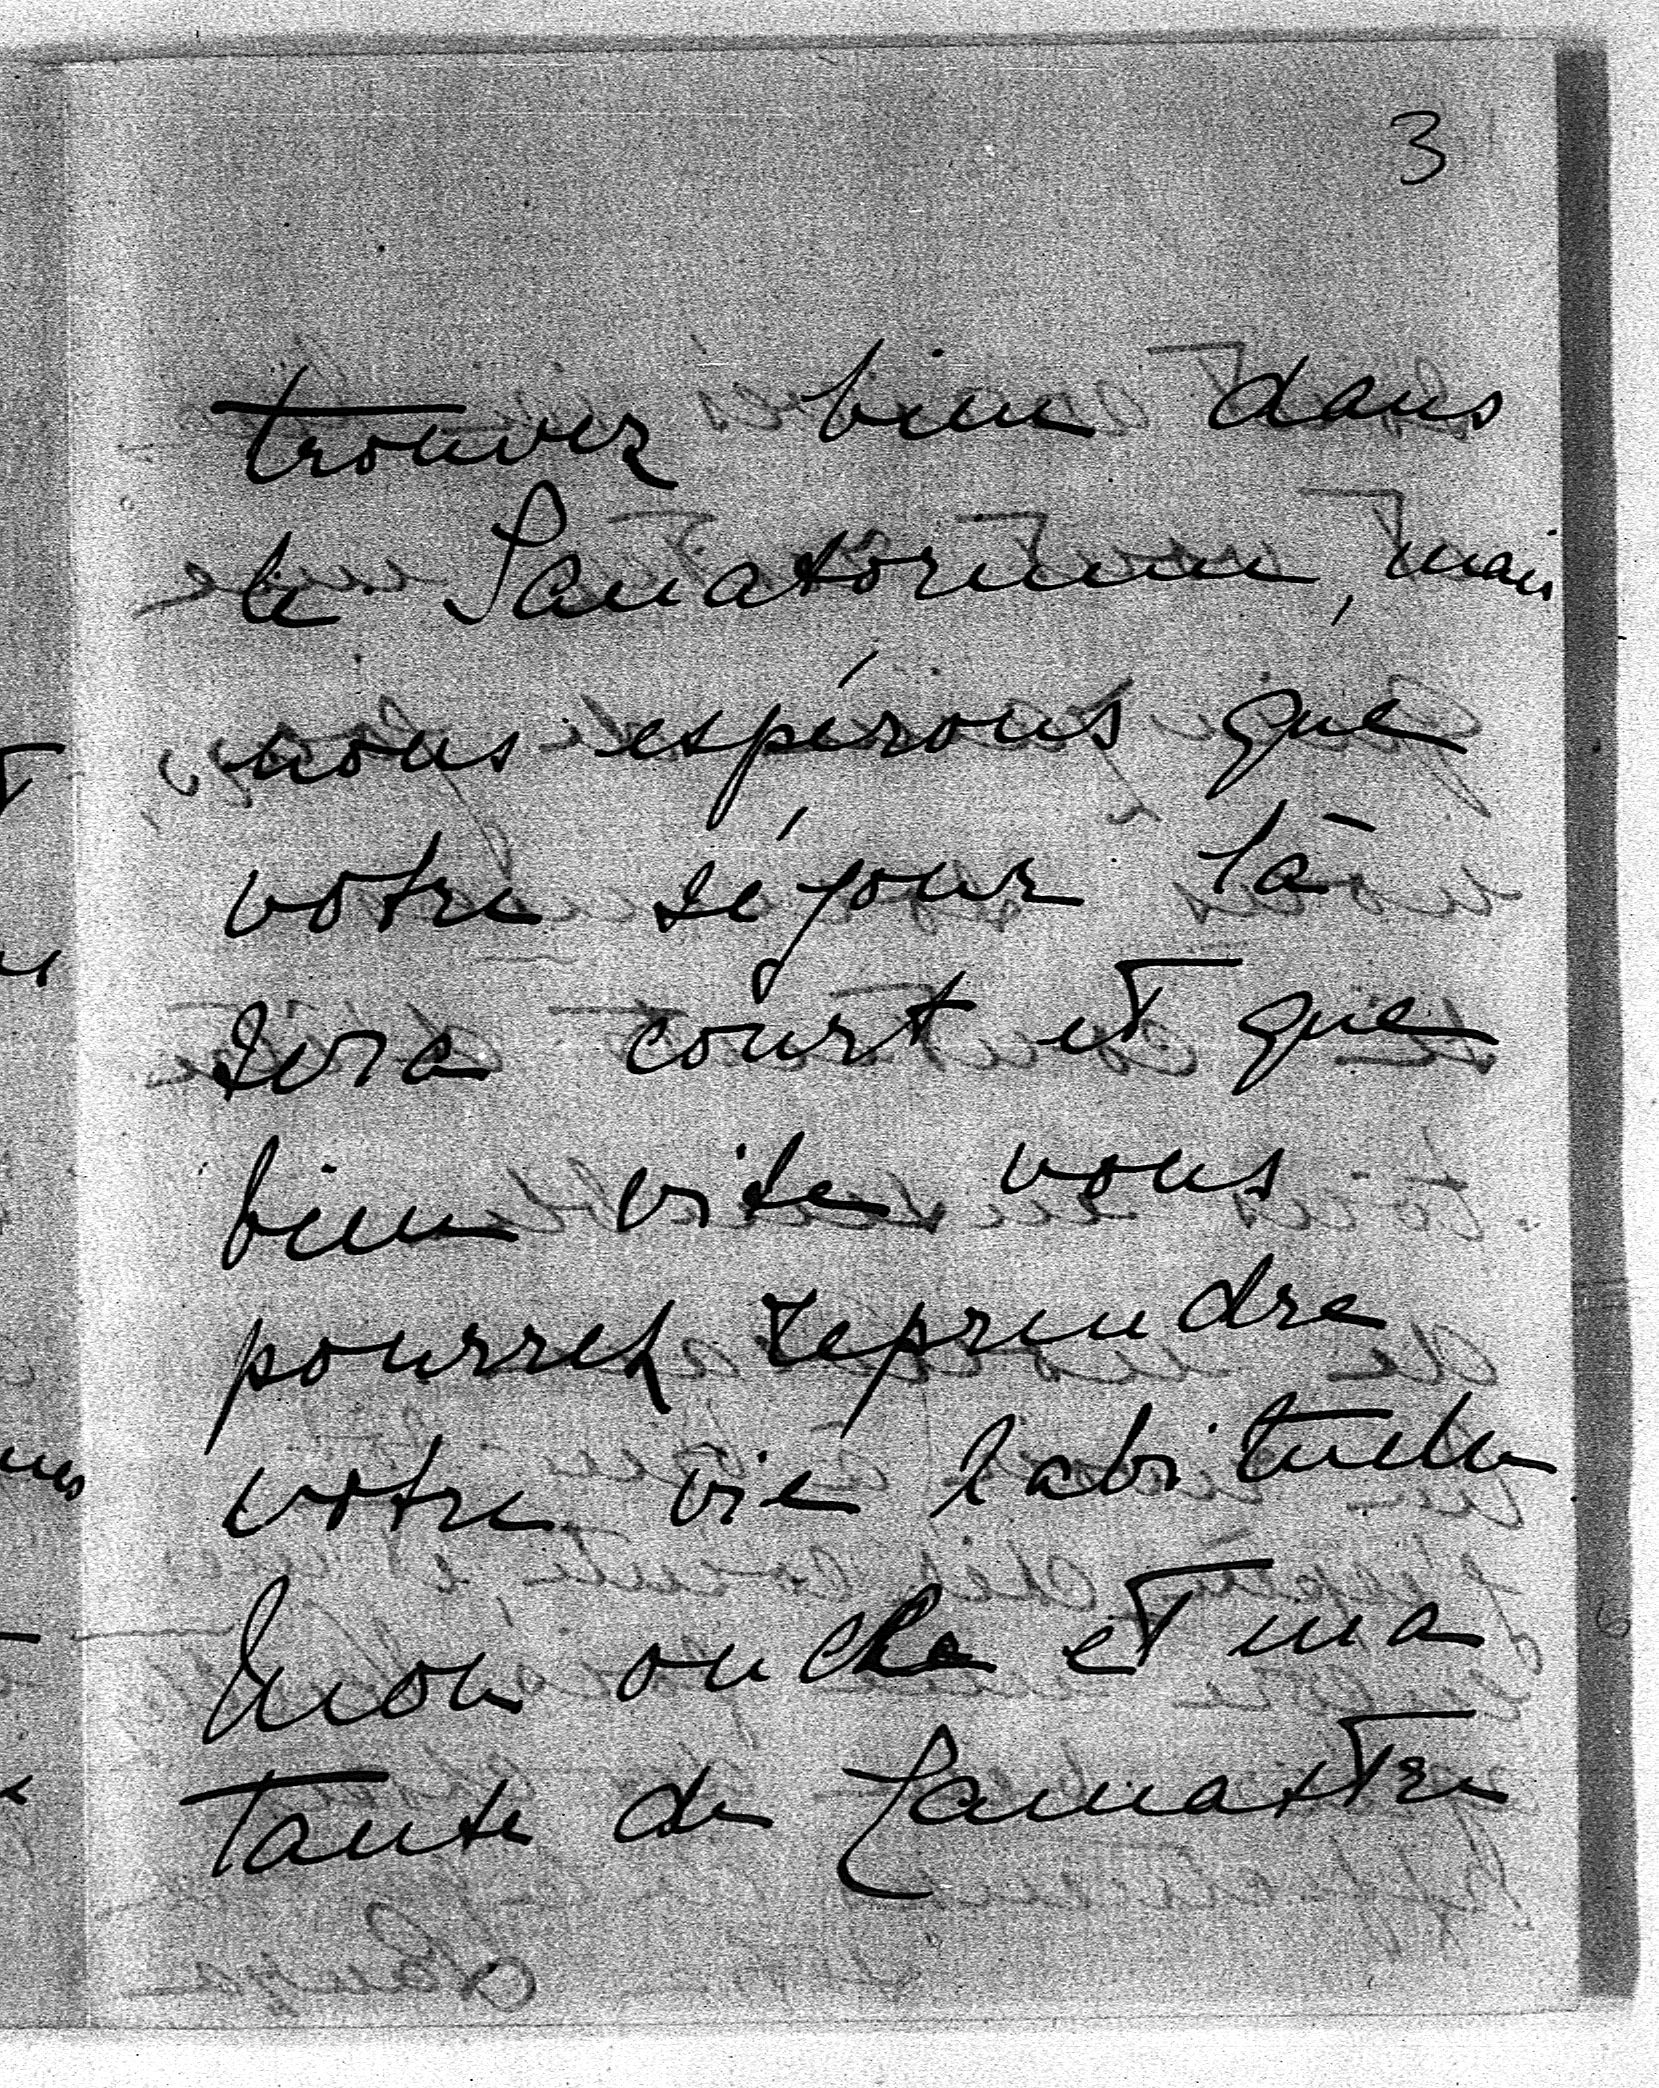 3
trouvez bien dans
le Sanatorium, mais
nous espérons que
votre séjour là
sera court et que
bien vite vous
pourrez reprendre
votre vie habituelle
Mon oncle et ma
tante de Lamattre